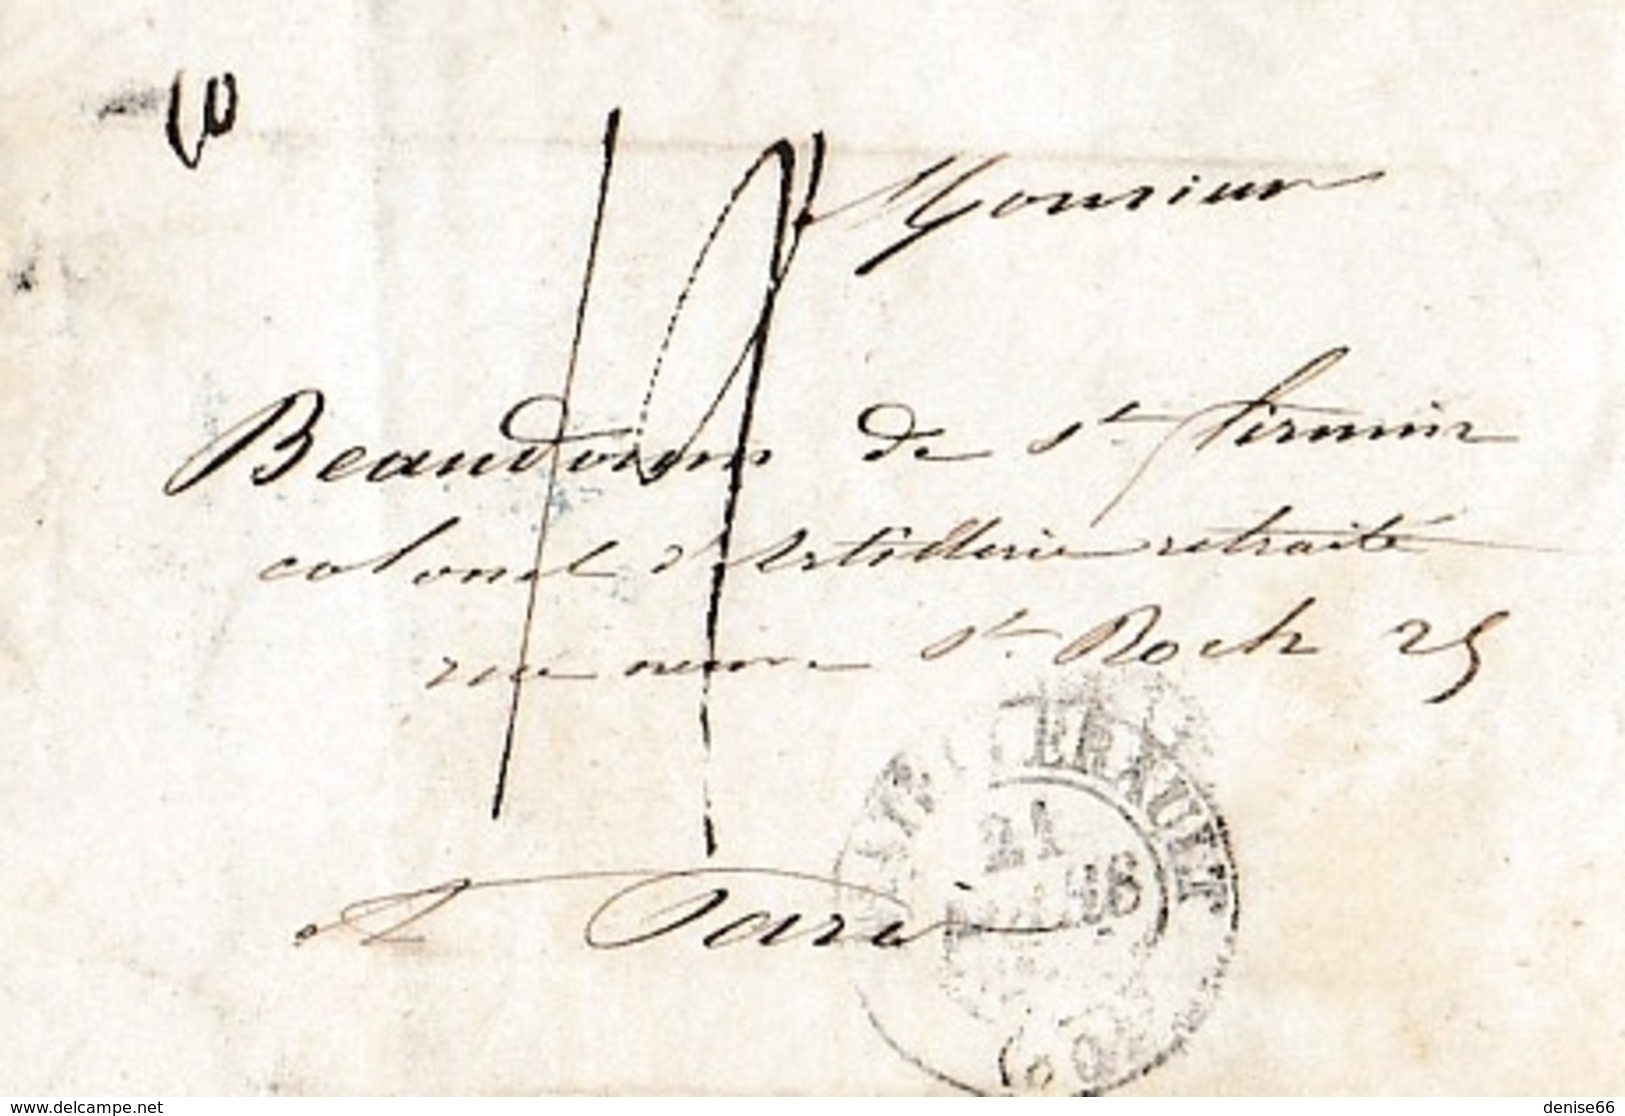 10
Monsieur
Beaudouin de St Firmin
colonel d'Artillerie retraité
rue neuve St Roch 25
A Paris
21
(60)
www.delcampe.net
denise66